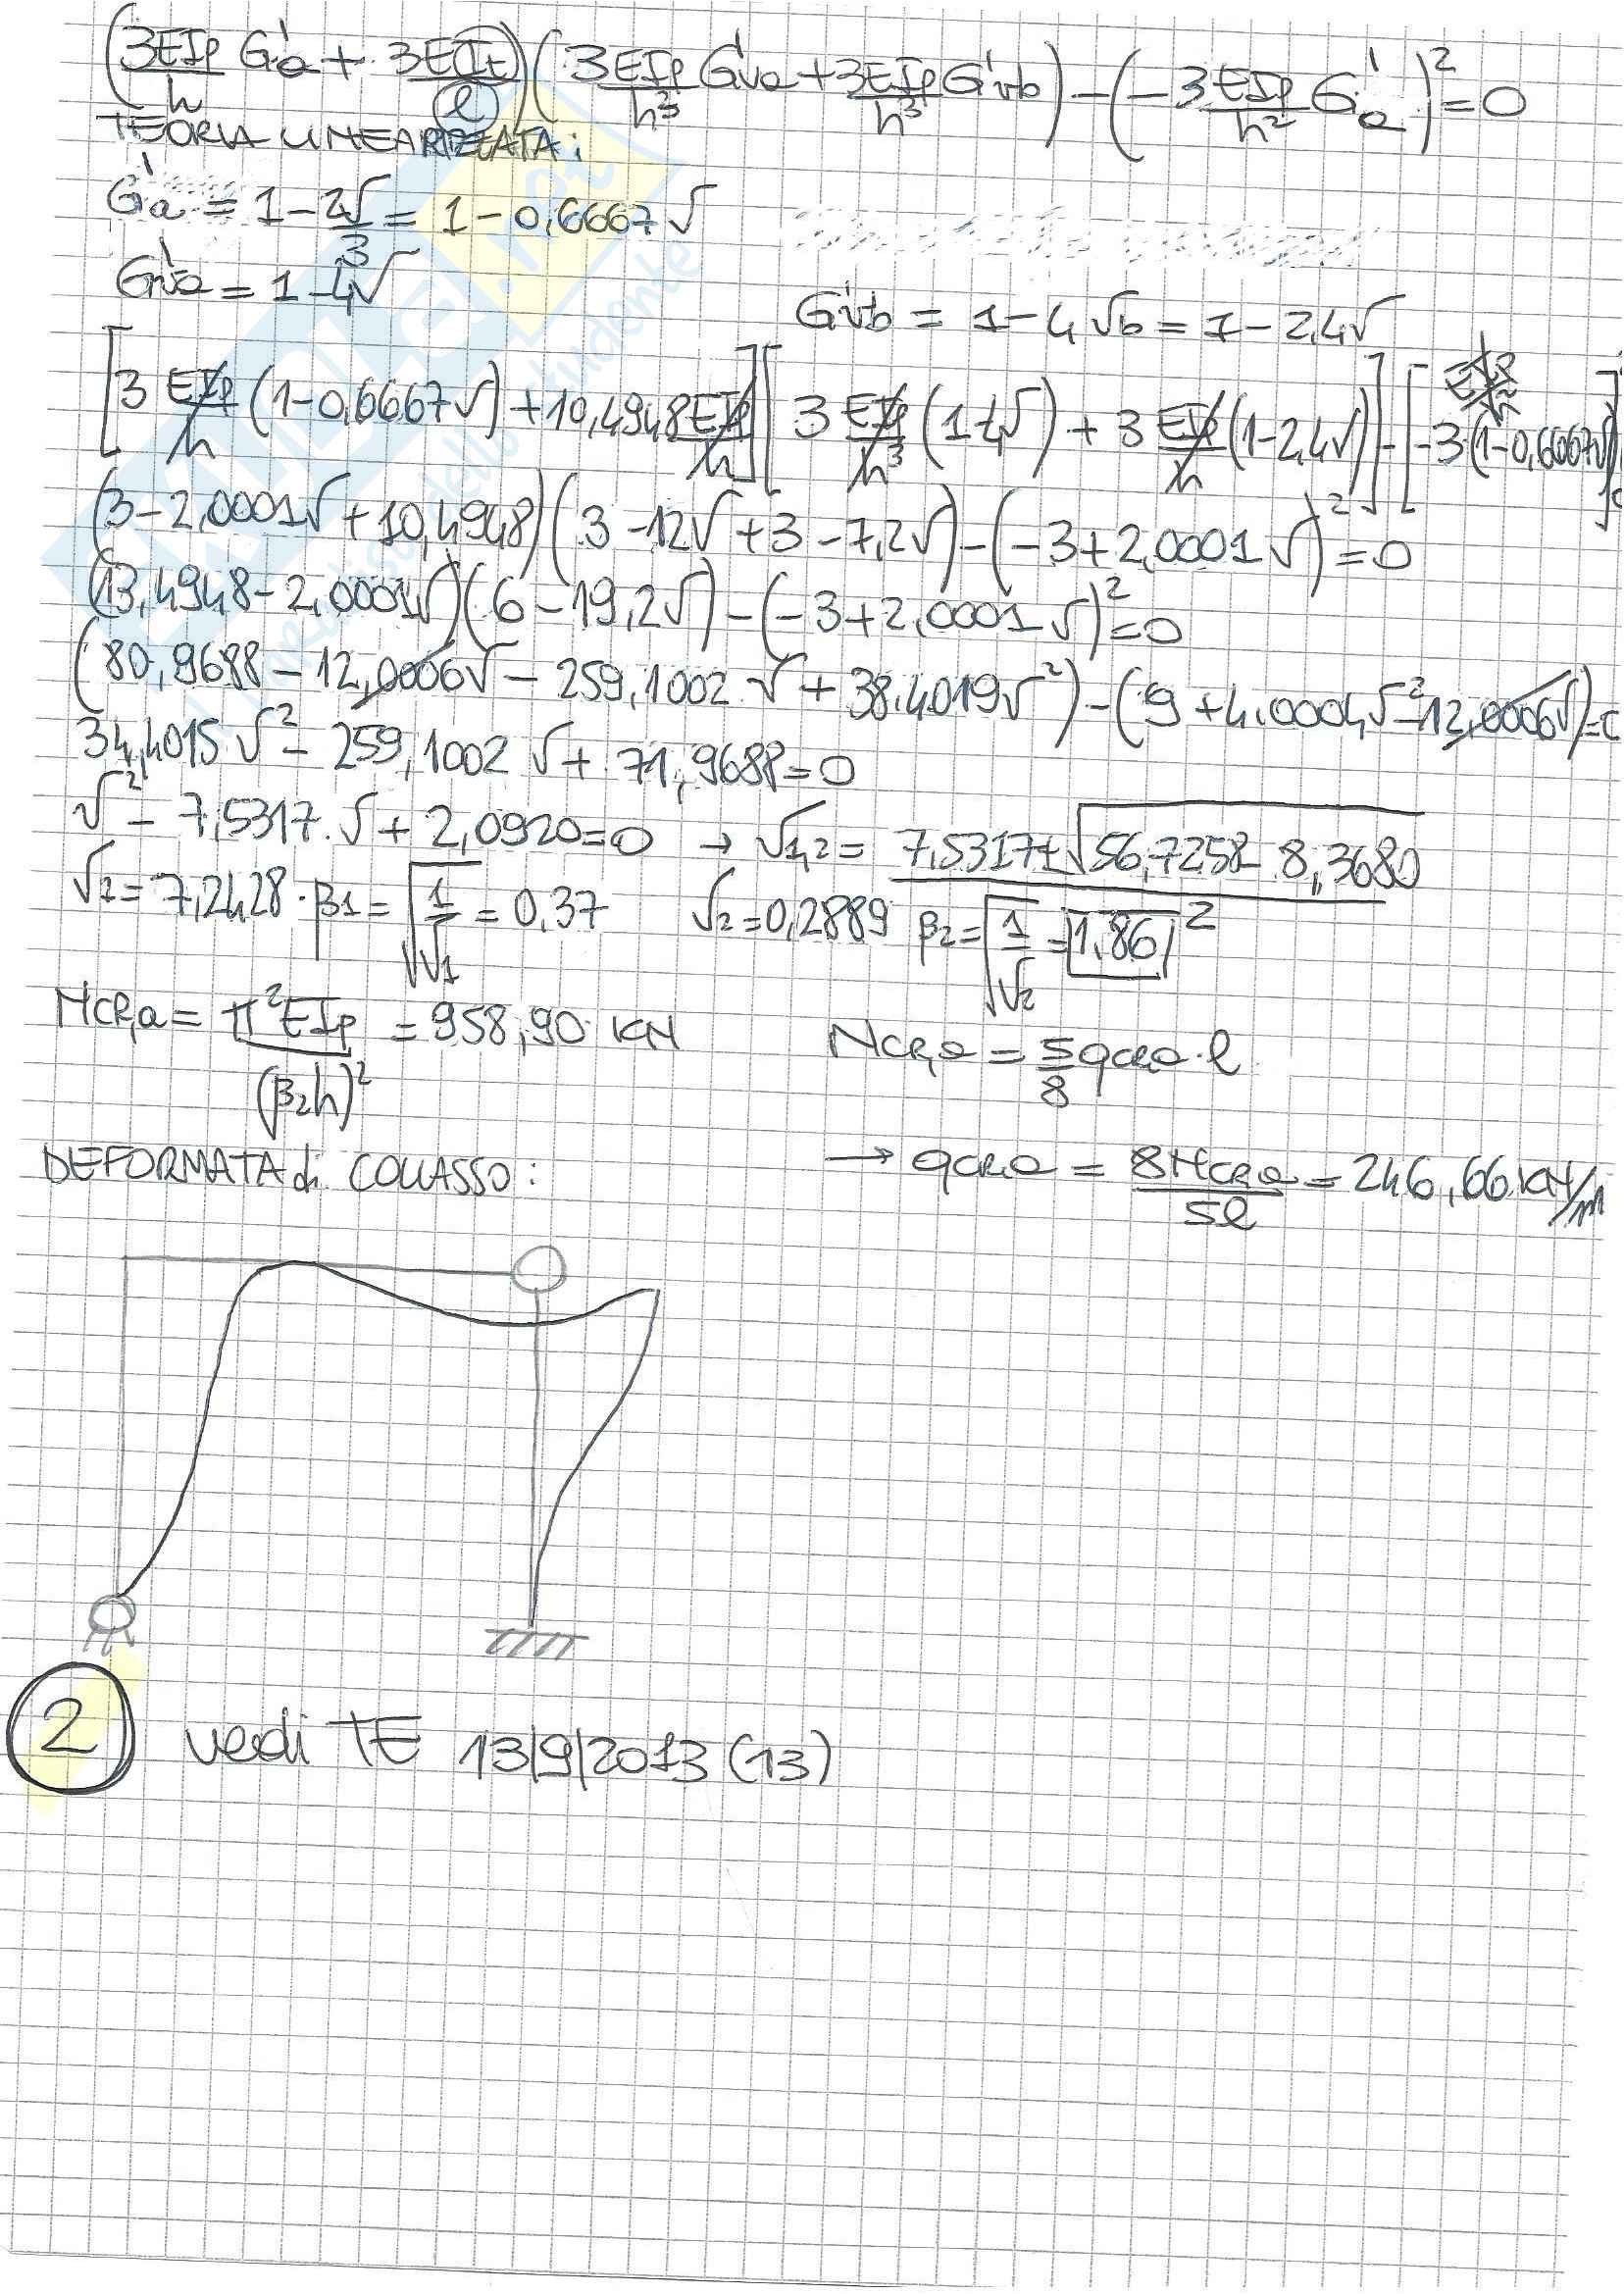 (3EIp/h G'a + 3EIt/l)(3EIp/h³ G'va + 3EIp/h³ G'vb) - (-3EIp/h² G'a)² = 0
TEORIA LINEARIZZATA:
G'a = 1 - 2√/3 = 1 - 0,6667√
G'va = 1 - 4√
G'vb = 1 - 4√b = 1 - 2,4√
[3 EIp/h (1-0,6667√) + 10,4948 EIp/h][3 EIp/h³ (1-4√) + 3 EIp/h (1-2,4√)] - [-3(1-0,6667√)]²
(3 - 2,0001√ + 10,4948)(3 - 12√ + 3 - 7,2√) - (-3 + 2,0001√)² = 0
(13,4948 - 2,0001√)(6 - 19,2√) - (-3 + 2,0001√)² = 0
(80,9688 - 12,0006√ - 259,1002√ + 38,4019√²) - (9 + 4,0004√² - 12,0006√) = 0
34,4015√² - 259,1002√ + 71,9688 = 0
√² - 7,5317·√ + 2,0920 = 0 → √1,2 = 7,5317 ± √(56,7258 - 8,3680) / 2
√1 = 7,2428 · β1 = √(1/√1) = 0,37 √2 = 0,2889 β2 = √(1/√2) = 1,86
Ncr,a = π²EIp/(β2h)² = 958,90 KN
Ncr,a = 5/8 qcr,a · l
DEFORMATA di COLLASSO:
→ qcr,a = 8Ncr,a/5l = 246,66 KN/m
2 vedi TE 13/9/2013 (13)